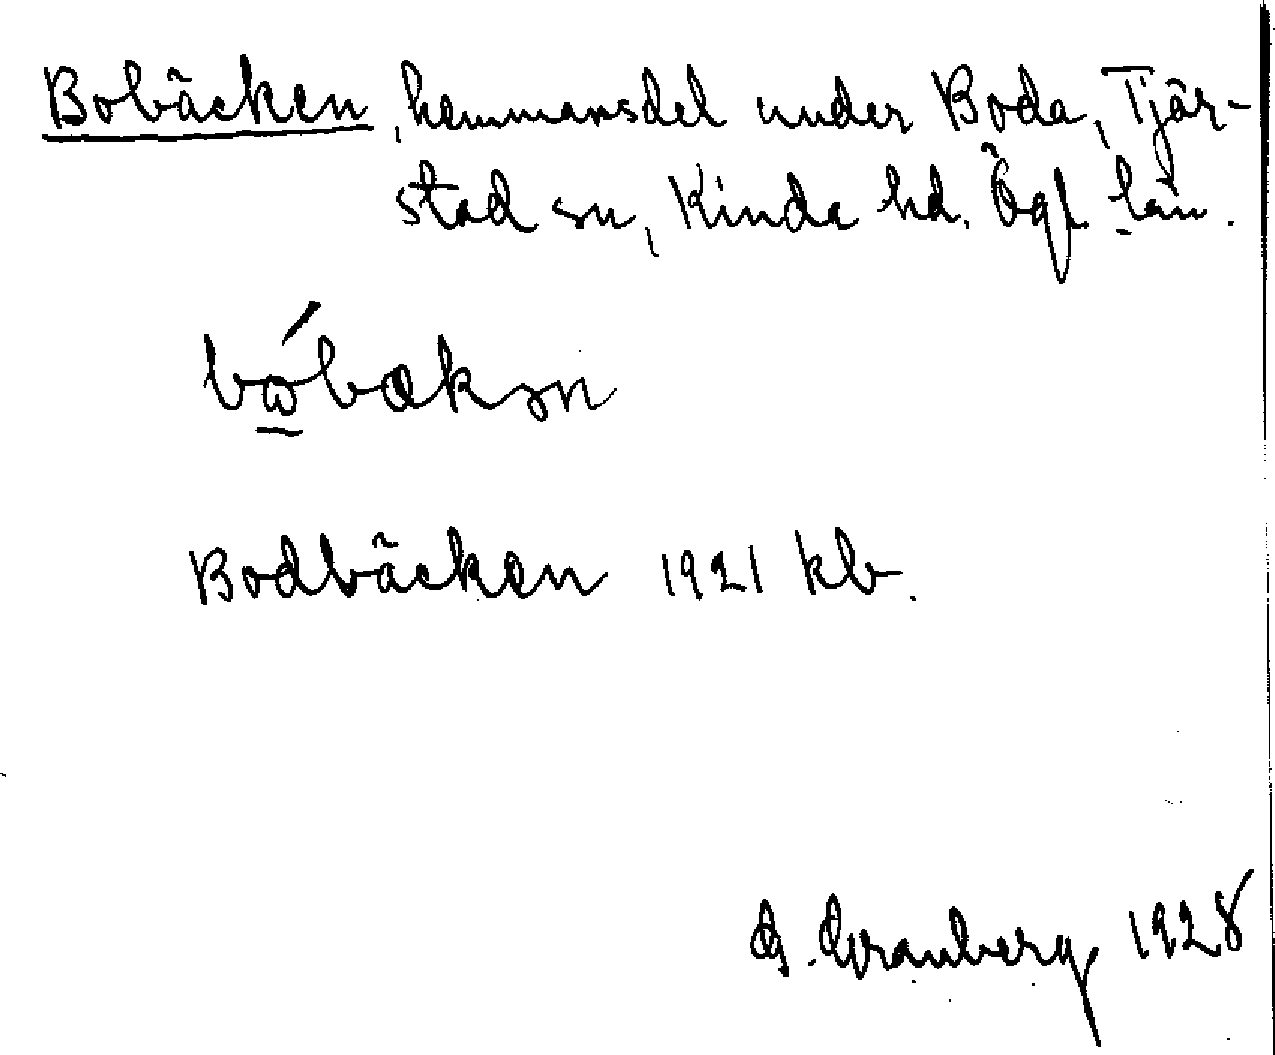 Bobäcken, hemmansdel under Boda, Tjär-
stad sn, Kinda hd. Ögl. län.
bώ̱bækən
Bodbäcken 1921 kb.
G. Granberg 1928